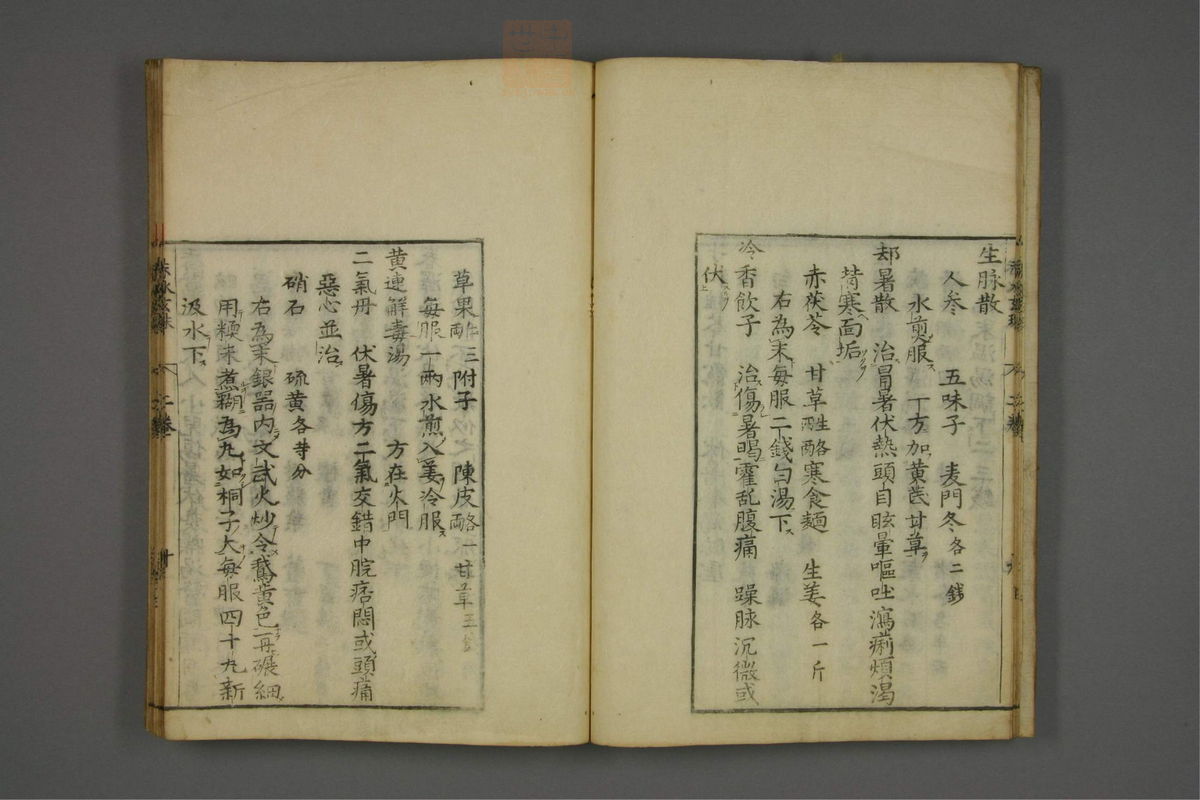 生脉散
人参　五味子　麦門冬各二錢
水煎服　一方加黄茋甘草
却暑散　治冒暑伏熱頭目眩暈嘔吐瀉痢煩渴
背寒面垢
赤茯苓　甘草　寒食麺　生姜各一斤
右為末每服二錢白湯下
冷香飲子　治傷暑暍霍乱腹痛　躁脉沉微或
伏
草果　三附子　陳皮　一甘草
每服一兩水煎入姜冷服
黄連解毒湯　方在火門
二氣丹　伏暑傷方二氣交錯中脘痞悶或頭痛
惡心並治
硝石　硫黄各等分
右為末銀器内文武火炒令鵞黄色再碾細
用糯米煮糊為丸如桐子大每服四十丸新
汲水下